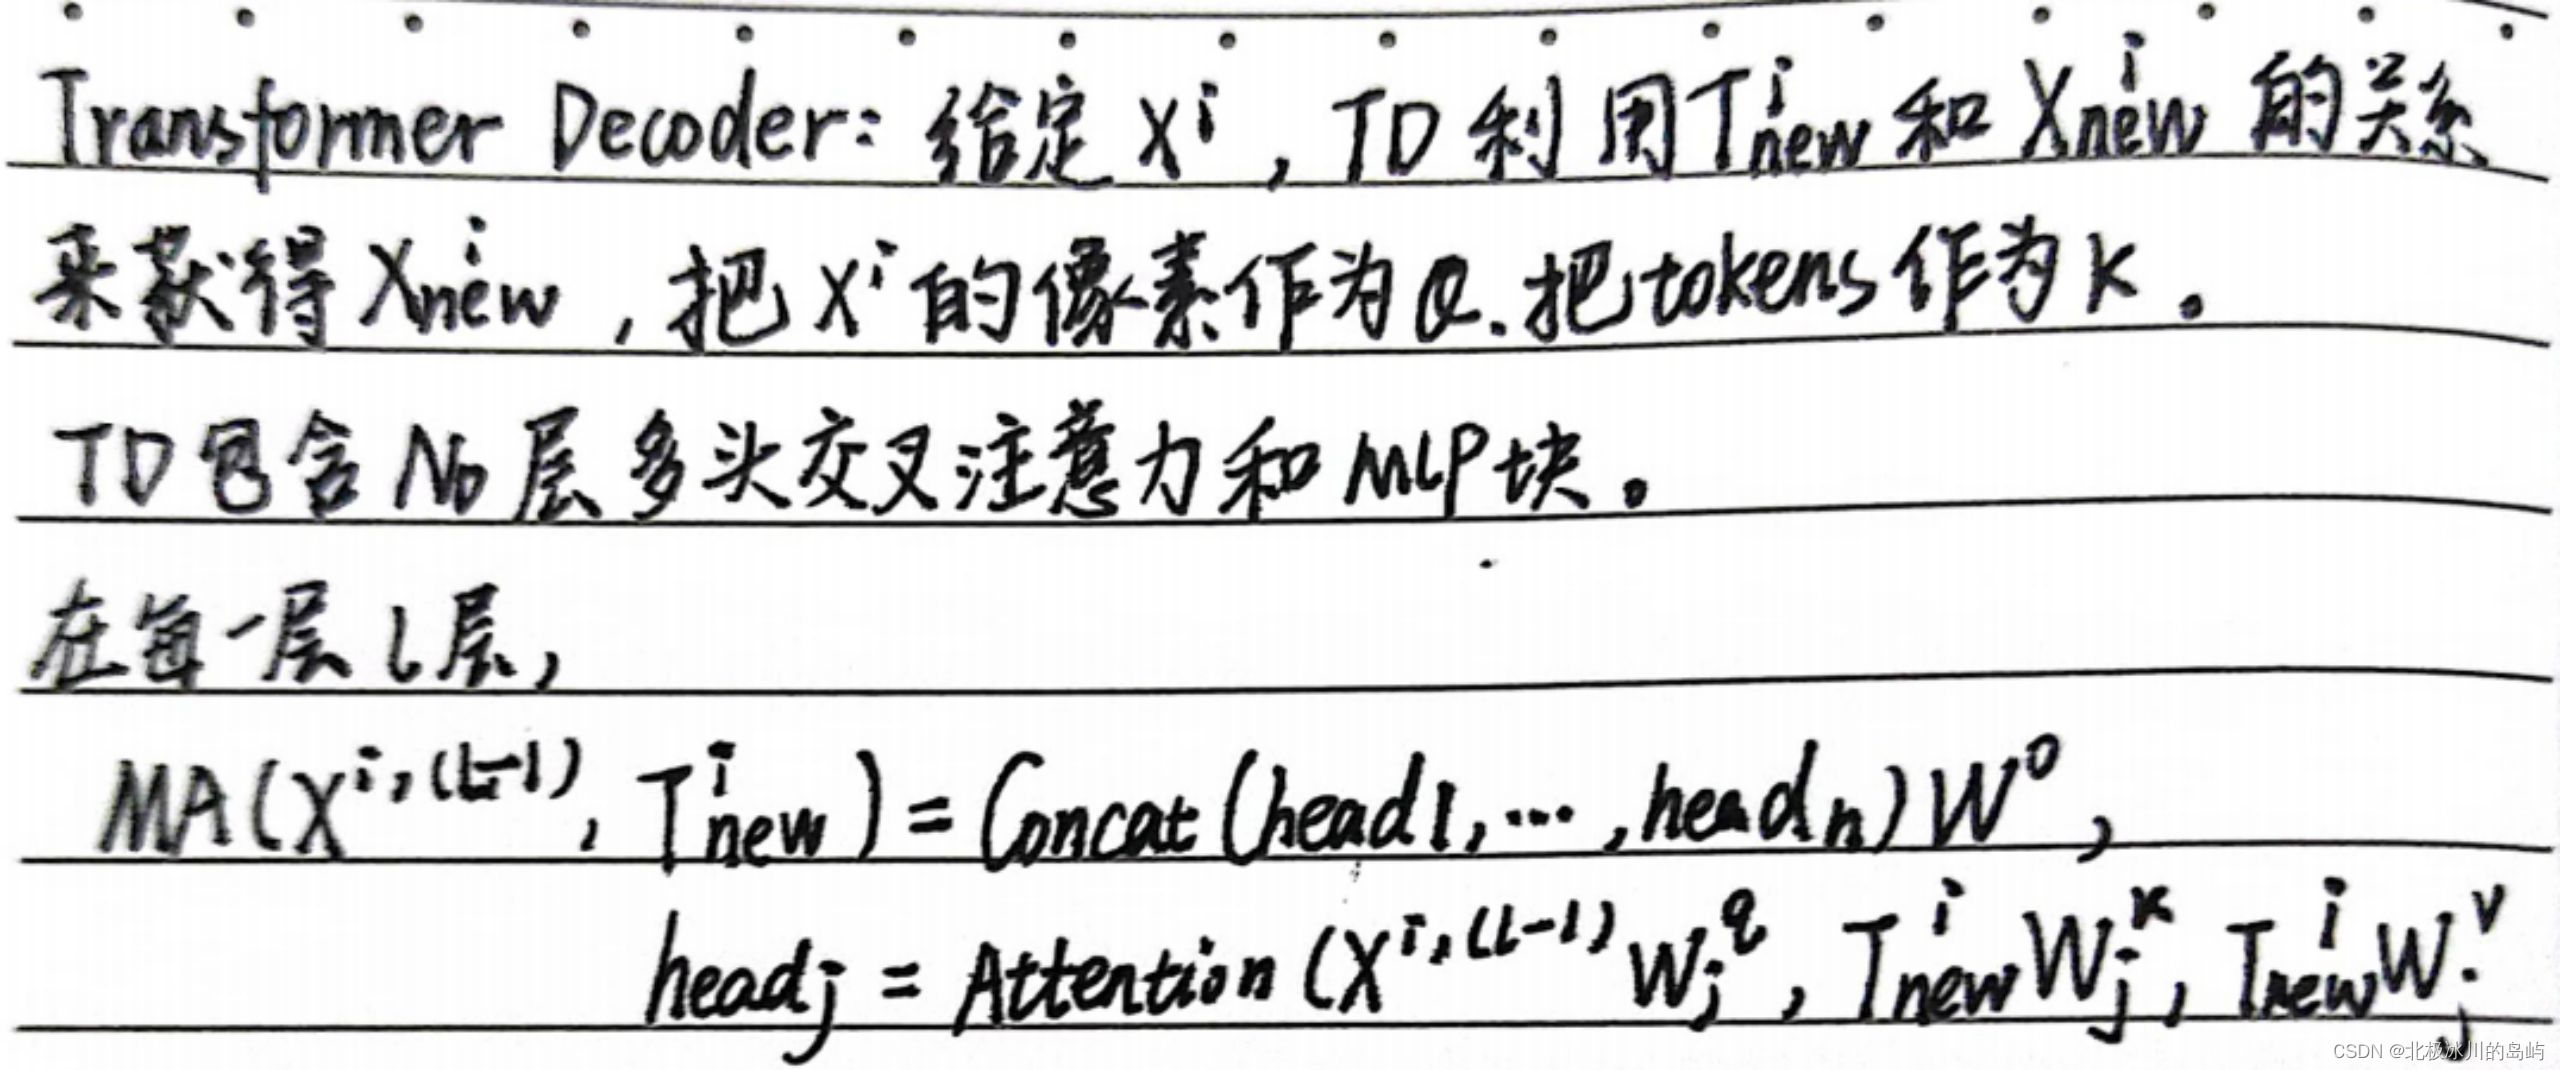 Transformer Decoder: 给定 Xⁱ, TD 利用 Tⁱnew 和 Xⁱnew 的关系
来获得 Xⁱnew, 把 Xⁱ 的像素作为Q. 把tokens作为K。
TD包含 N_D 层多头交叉注意力和MLP块。
在每一层 l 层,
MA(X^{i,(l-1)}, Tⁱnew) = Concat(head1, ..., headn)W⁰,
headj = Attention(X^{i,(l-1)}W_j^q, TⁱnewW_j^k, TⁱnewW_j^v
CSDN @北极冰川的岛屿